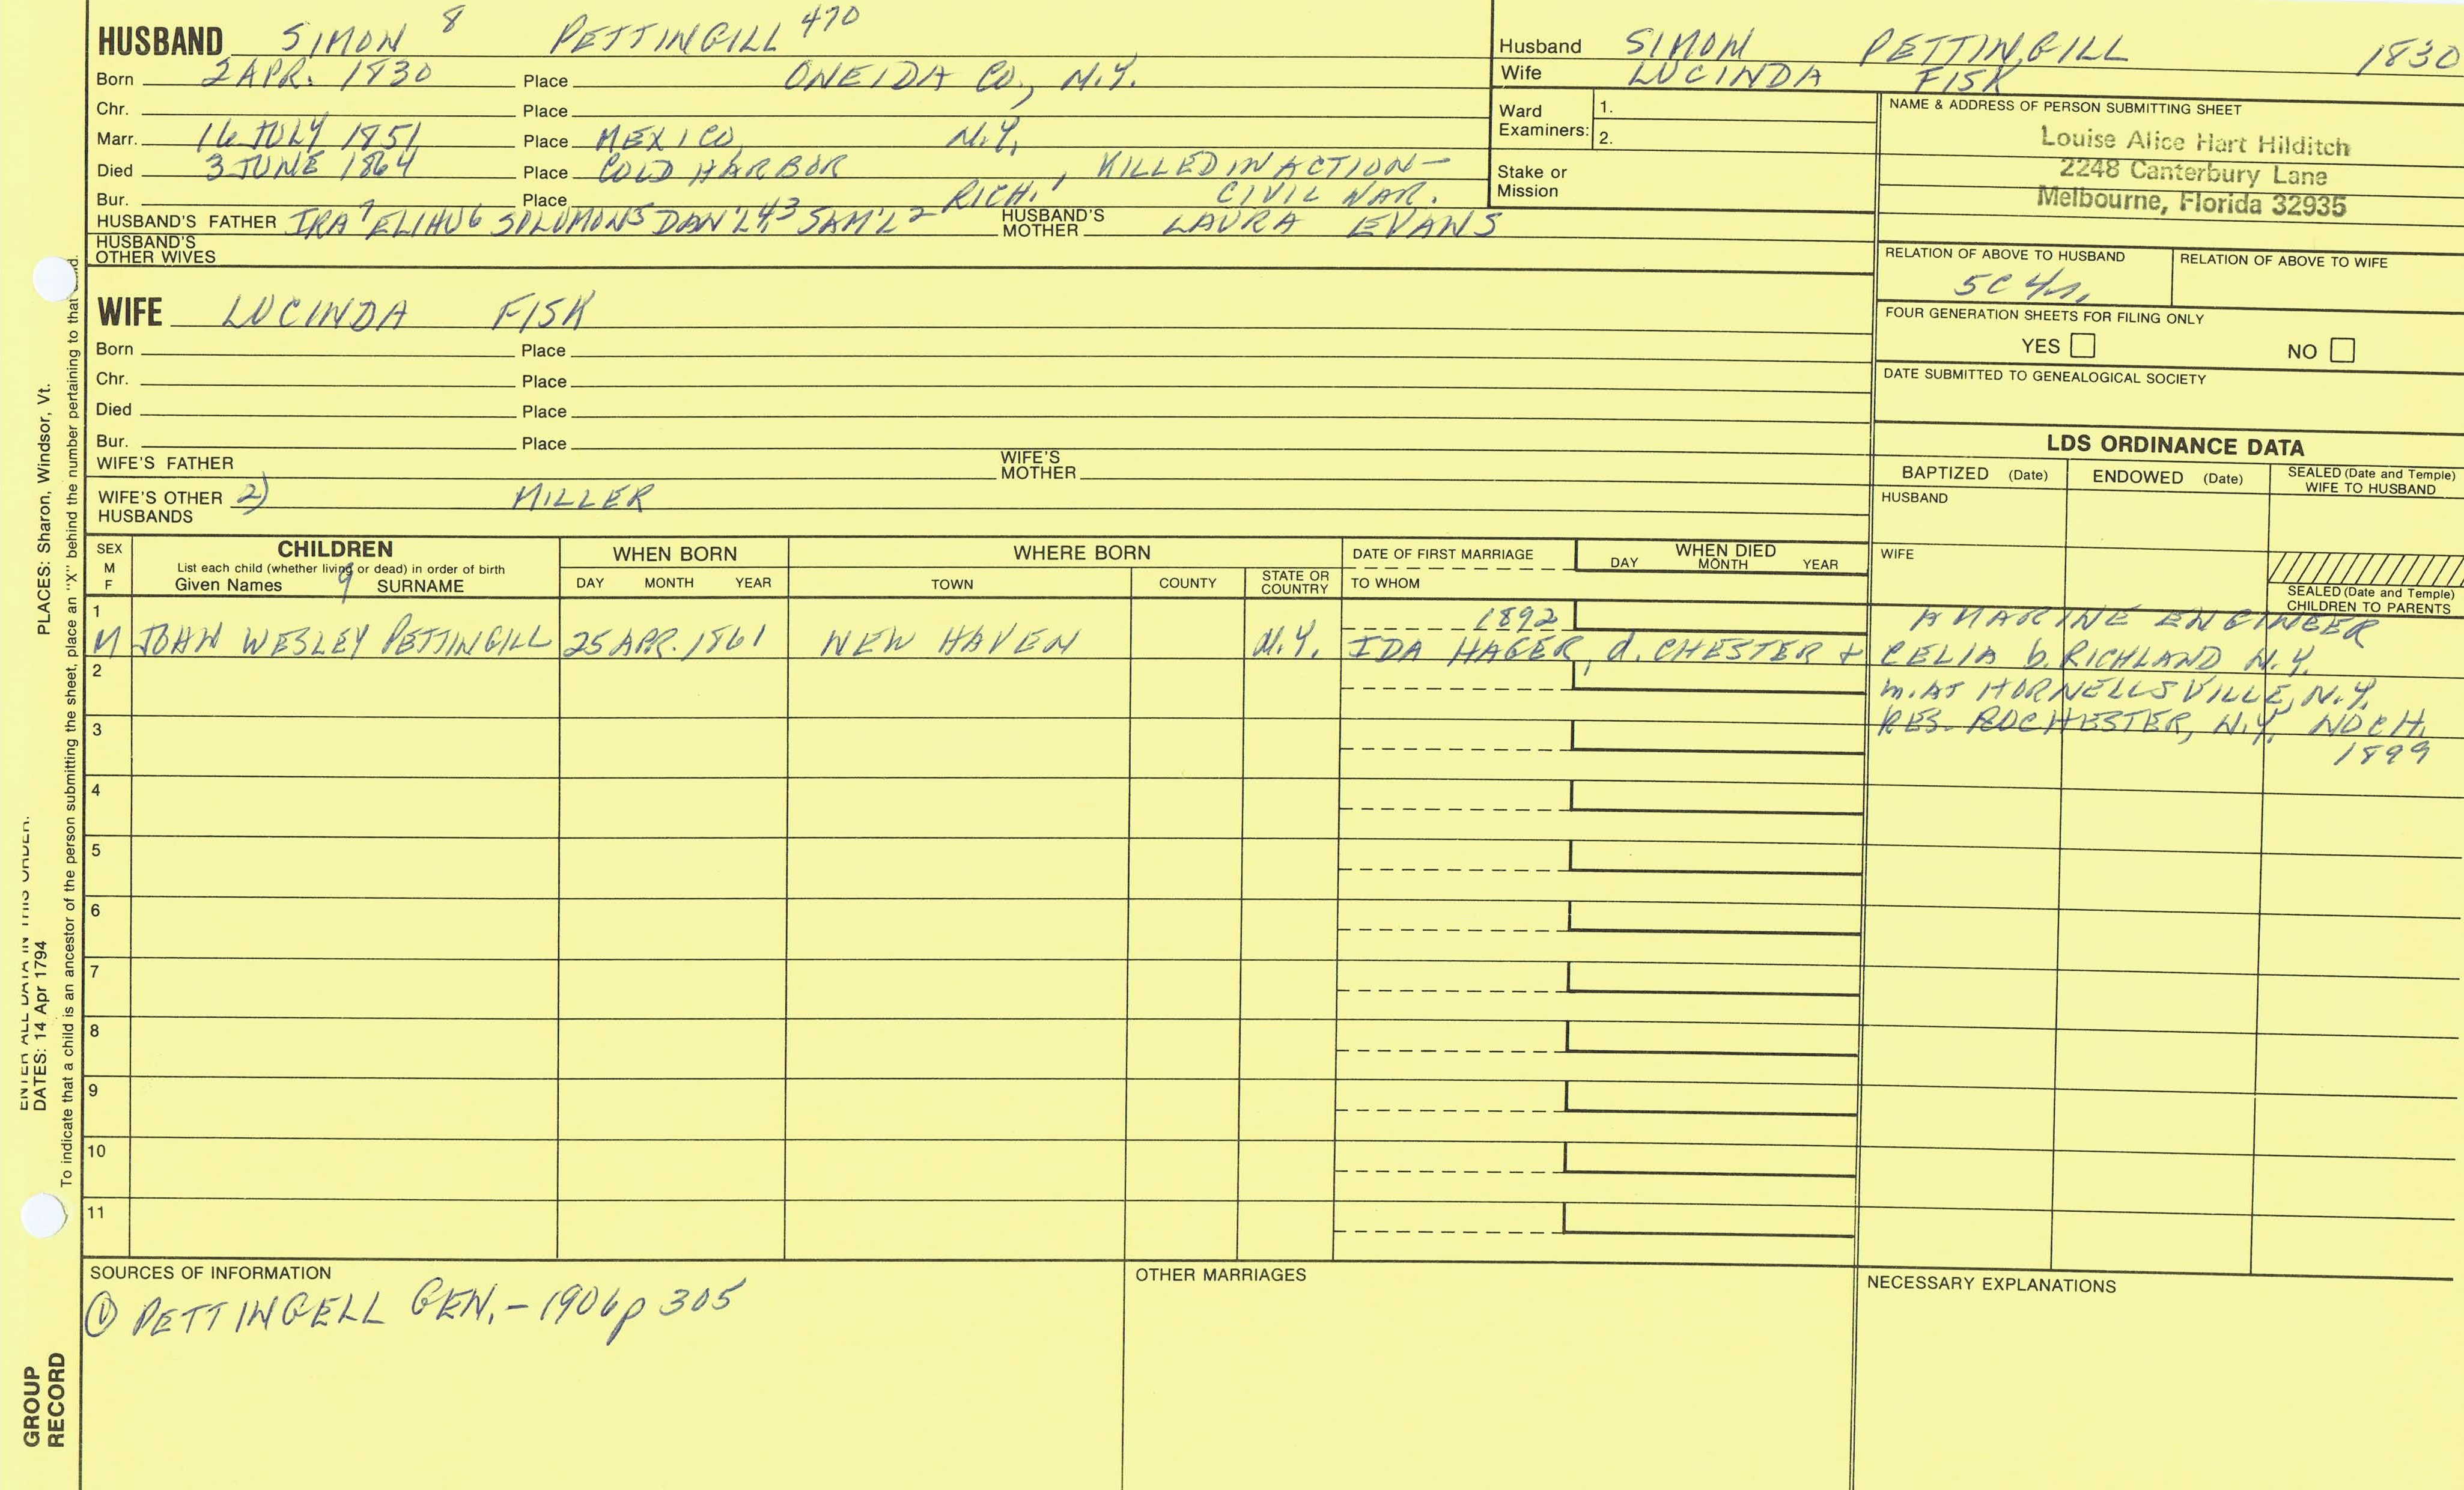 HUSBAND SIMON 8 PETTINGILL 470
Born 2 APR. 1830 Place ONEIDA CO., N.Y.
Chr. Place
Marr. 16 JULY 1851 Place MEXICO, N.Y.
Died 3 JUNE 1864 Place COLD HARBOR, KILLED IN ACTION -
Bur. Place RICH.1 CIVIL WAR.
HUSBAND'S FATHER IRA7 ELIHU6 SOLOMON5 DAN'L4,3 SAM'L2 HUSBAND'S MOTHER LAURA EVANS
HUSBAND'S OTHER WIVES
Husband SIMON PETTINGILL 1830
Wife LUCINDA FISK
Ward Examiners: 1.
2.
Stake or Mission
NAME & ADDRESS OF PERSON SUBMITTING SHEET
Louise Alice Hart Hilditch
2248 Canterbury Lane
Melbourne, Florida 32935
RELATION OF ABOVE TO HUSBAND RELATION OF ABOVE TO WIFE
5C 4r.
FOUR GENERATION SHEETS FOR FILING ONLY
YES NO
DATE SUBMITTED TO GENEALOGICAL SOCIETY
WIFE LUCINDA FISK
Born Place
Chr. Place
Died Place
Bur. Place
WIFE'S FATHER WIFE'S MOTHER
WIFE'S OTHER HUSBANDS 2) MILLER
LDS ORDINANCE DATA
BAPTIZED (Date) ENDOWED (Date) SEALED (Date and Temple) WIFE TO HUSBAND
HUSBAND
WIFE
SEALED (Date and Temple) CHILDREN TO PARENTS
SEX M F
CHILDREN
List each child (whether living or dead) in order of birth
Given Names 9 SURNAME
WHEN BORN
DAY MONTH YEAR
WHERE BORN
TOWN COUNTY STATE OR COUNTRY
DATE OF FIRST MARRIAGE
TO WHOM
WHEN DIED
DAY MONTH YEAR
1 1892 A MARINE ENGINEER
M JOHN WESLEY PETTINGILL 25 APR. 1861 NEW HAVEN N.Y. IDA HAGER, d. CHESTER & CELIA b. RICHLAND N.Y.
2 m. AT HORNELLSVILLE, N.Y.
3 RES. ROCHESTER, N.Y. NO CH.
1899
4
5
6
7
8
9
10
11
SOURCES OF INFORMATION
① PETTINGELL GEN. - 1906 p 305
OTHER MARRIAGES
NECESSARY EXPLANATIONS
PLACES: Sharon, Windsor, Vt.
ENTER ALL DATA IN THIS ORDER.
DATES: 14 Apr 1794
To indicate that a child is an ancestor of the person submitting the sheet, place an "X" behind the number pertaining to that
GROUP
RECORD